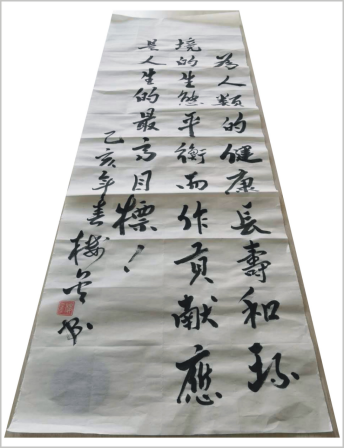 為人類的健康長壽和環
境的生態平衡而作貢獻應
是人生的最高目標！
乙亥年春書